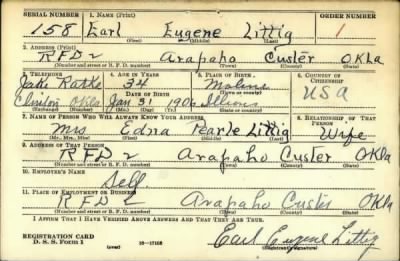 SERIAL NUMBER 1. NAME (Print) ORDER NUMBER
158 Earl Eugene Littig 1
(First) (Middle) (Last)
2. ADDRESS (Print)
RFD 2 Arapaho Custer Okla
(Number and street or R. F. D. number) (Town) (County) (State)
3. TELEPHONE 4. AGE IN YEARS 5. PLACE OF BIRTH 6. COUNTRY OF CITIZENSHIP
Jake Ratke 34 Moline
DATE OF BIRTH USA
Clinton Okla Jan 31 1906 Illinois
(Exchange) (Number) (Mo.) (Day) (Yr.) (State or country)
7. NAME OF PERSON WHO WILL ALWAYS KNOW YOUR ADDRESS 8. RELATIONSHIP OF THAT PERSON
Mrs Edna Pearle Littig Wife
(Mr., Mrs., Miss) (First) (Middle) (Last)
9. ADDRESS OF THAT PERSON
RFD 2 Arapaho Custer Okla
(Number and street or R. F. D. number) (Town) (County) (State)
10. EMPLOYER'S NAME
Self
11. PLACE OF EMPLOYMENT OR BUSINESS
RFD 2 Arapaho Custer Okla
(Number and street or R. F. D. number) (Town) (County) (State)
I AFFIRM THAT I HAVE VERIFIED ABOVE ANSWERS AND THAT THEY ARE TRUE.
REGISTRATION CARD
D. S. S. Form 1 (over) 16-17105 Earl Eugene Littig
(Registrant's signature)